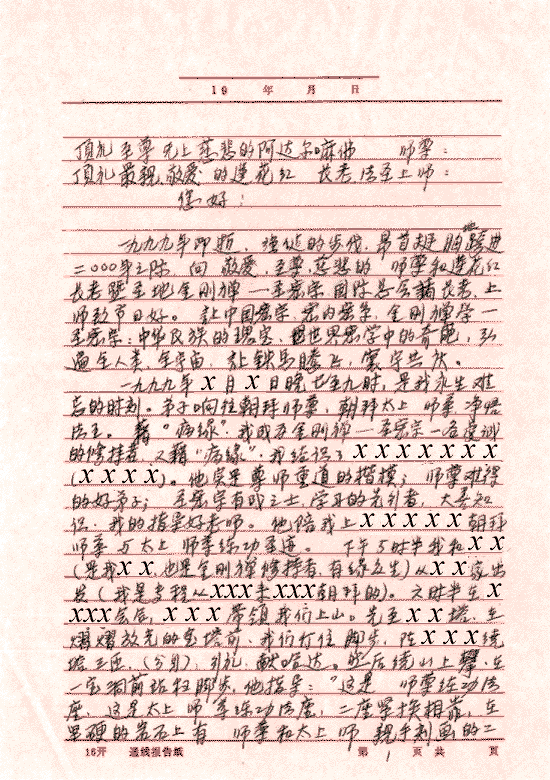 19 年 月 日
頂礼至尊无上慈悲的阿达尔麻佛 师尊:
頂礼最親敬爱的莲花红 長老,法至上师:
您好:
一九九九年即逝, 强健的步伐,昂首 胸跨进
二000年之际 向敬爱,至尊,慈悲的 师尊和莲花红
長老暨至地金刚禅一至密宗国际总会 長老,上
师致节日好。 让中国密宗,宏内密宗,金刚禅学一
至密宗:中华民族的瑰宝, 世界密学中的奇葩,弘
遍全人类,全宇宙,让铁马腾飞,寰宇共 。
一九九九年 x 月 x 日晚七至九时,是我永生难
忘的时刻。弟子响往朝拜师尊,朝拜太上 师尊 净 
法至。 藉“病缘”,我成为金刚禅一至密宗一名虔诚
的修持者,又藉“病缘”,我结识了 x x x x x x x
(x x x x)。他实是尊师重道的楷模; 师尊难得
的好弟子; 至密宗有成之士,学习的先引者,大善知
识,我的指导好老师。他陪我上 x x x x x 朝拜
师尊与太上 师尊练功圣迹。 下午5时半我和 x x
(是我 x x,也是金刚禅修持者,有缘众生)从 x x 家出
发(我是专程从 xxx 来 xxx 朝拜的)。六时半在 x
xxx 会后, x x x 带领我们上山。先至 x x 塔,在
熠熠放光的宝塔前,我们打住脚步,随 x x x 绕
塔三匝,(分身),頂礼,献哈达。然后绕山上攀,在
一宝洞前站住脚步,他指导:“这是 师尊练功法
座,这是太上 师尊练功法座,二座紧挨相靠,在
坚硬的岩石上有 师尊和太上 师 親手刻画的二
16开 通线报告纸 第 1 页共 页